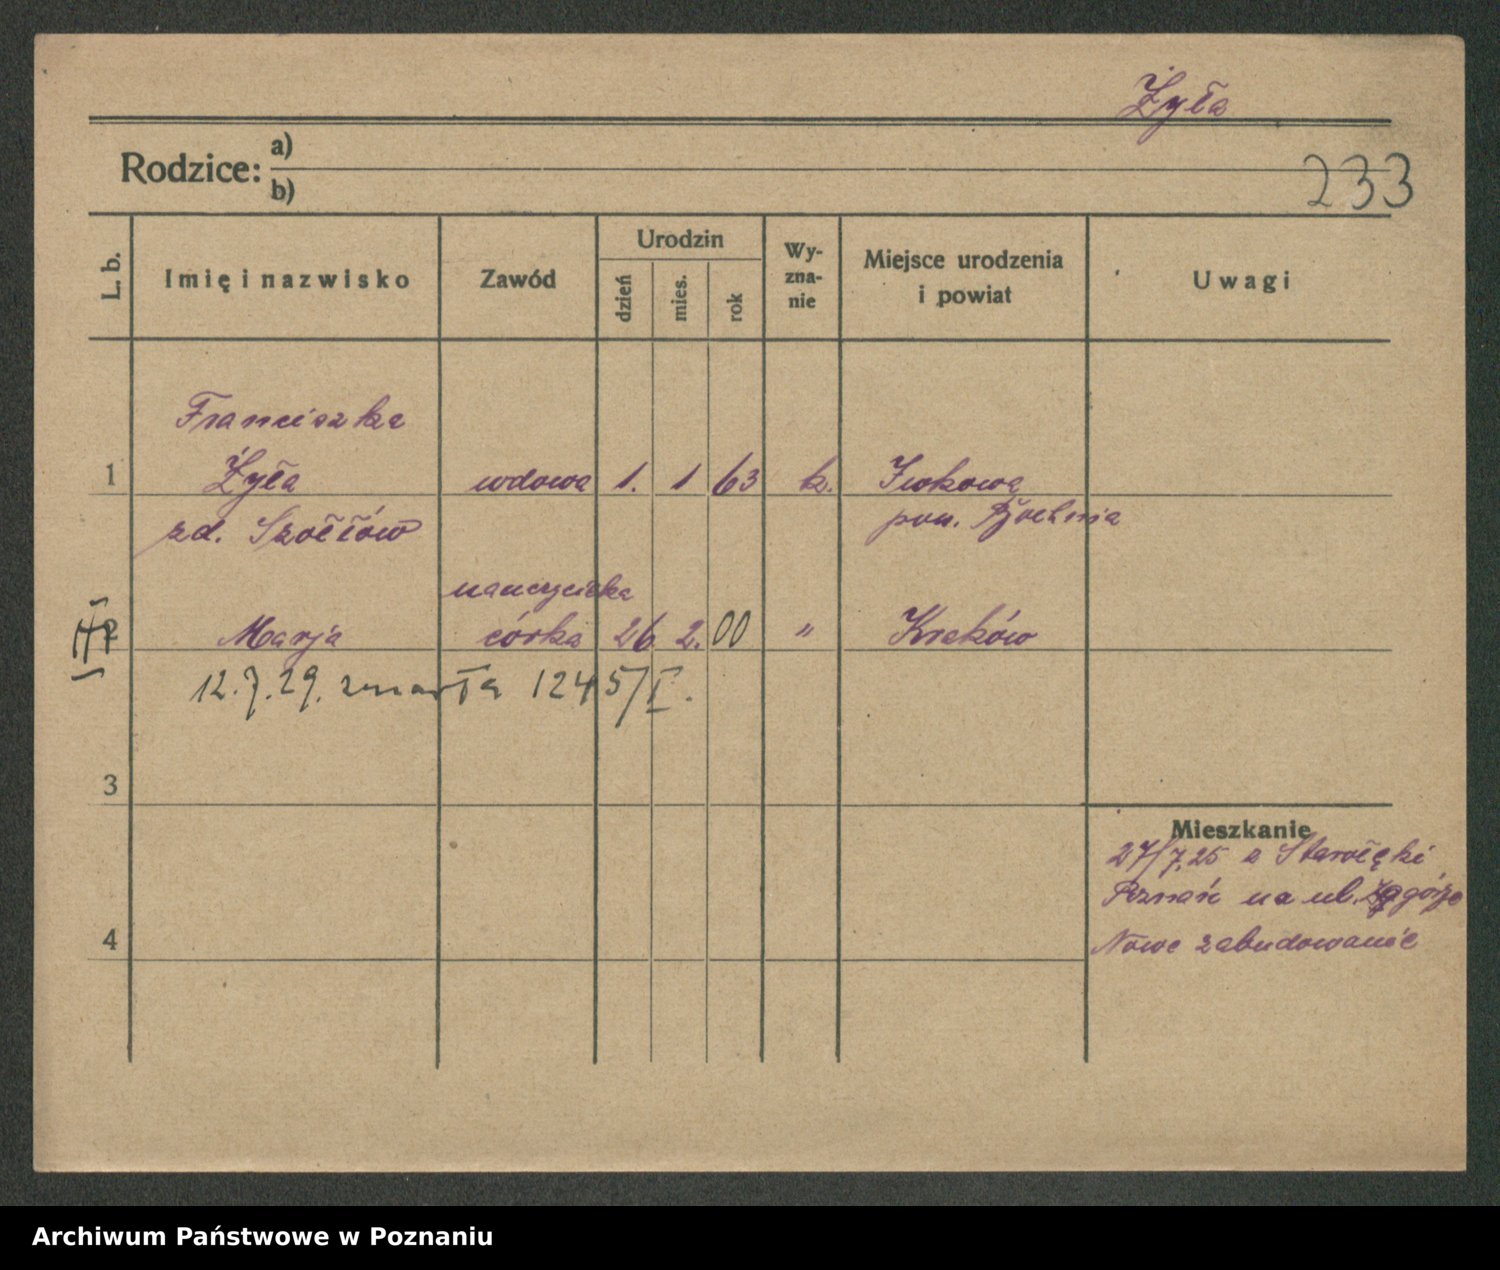 Żyła
Rodzice: a)
b)
233
L. b.
Imię i nazwisko
Zawód
Urodzin
dzień
mies.
rok
Wy-
zna-
nie
Miejsce urodzenia
i powiat
Uwagi
Franciszka
1 Żyła wdowa 1. 1 63 k. Iwkowa
zd. Szołłów pow. Bochnia
nauczycielka
2 Marja córka 26 2. 00 " Kraków
12.7.29. zmarła 1245/I.
3
4
Mieszkanie
27/7.25 z Starołęki
Poznań na ul. Zagórze
Nowe zabudowanie
Archiwum Państwowe w Poznaniu